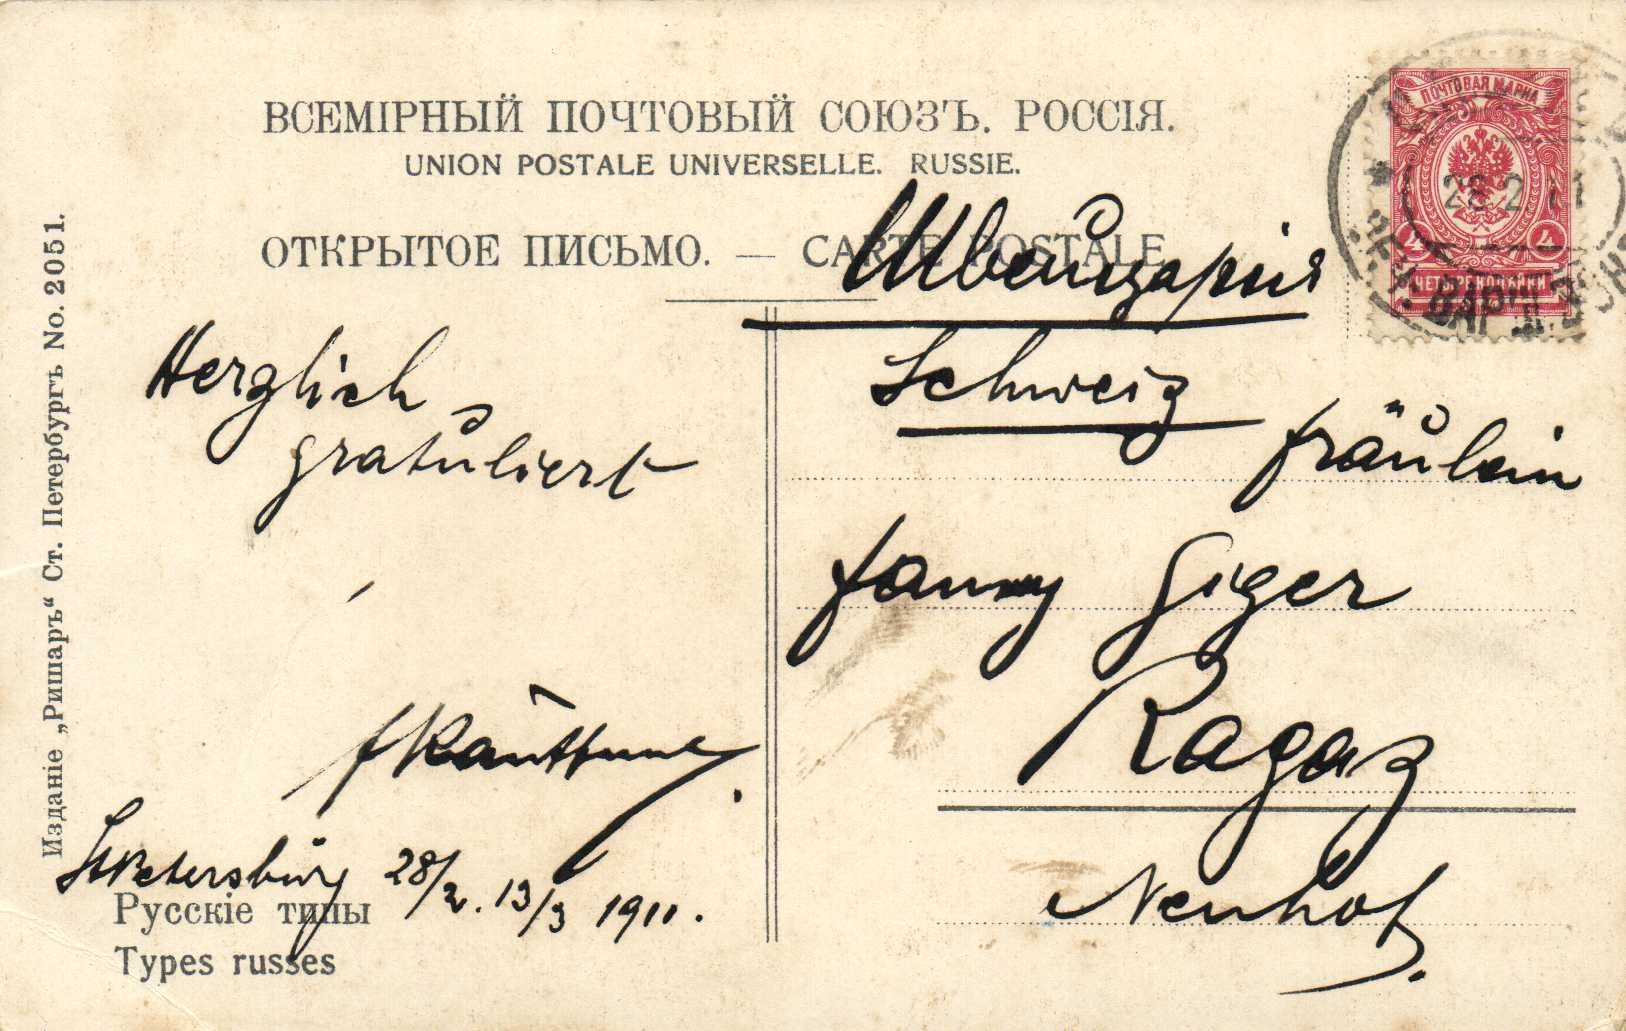 ВСЕМІРНЫЙ ПОЧТОВЫЙ СОЮЗЪ. РОССІЯ.
UNION POSTALE UNIVERSELLE. RUSSIE.
ОТКРЫТОЕ ПИСЬМО. — CARTE POSTALE
ПОЧТОВАЯ МАРКА
4 4
ЧЕТЫРЕ КОП БЙКИ
28 2 11
ВАРШ.
Швейцарія
Schweiz
Fräulein
Fanny Giger
Ragaz
Neuhof.
Herzlich
gratuliert
St Petersburg 28/2. 13/3 1911.
Русскіе типы
Types russes
Изданіе „Ришаръ“ Ст. Петербургъ No. 2051.